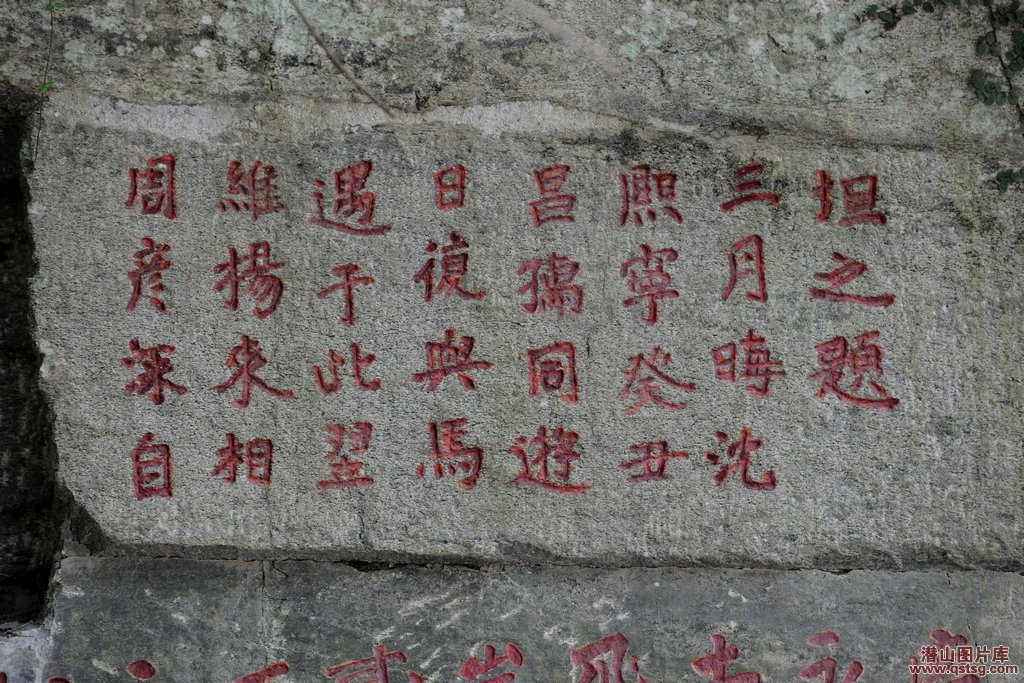 周彦深自
維揚來相
遇于此翌
日復與馬
昌孺同遊
熙寧癸丑
三月晦沈
坦之題
潜山图片库
www.qstsg.com